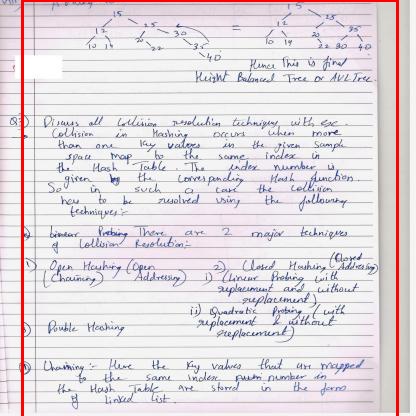 15
15
12 25 = 12 25
10 14 20 30 10 14 20 35
22 35 22 30 40
40
Hence This is final
Height Balanced Tree or AVL Tree.
Q3) Discuss all Collision resolution techniques with exe.
Collision in Hashing occurs when more
than one key values in the given sample
space map to the same index in
the Hash Table. The index number is
given by the corresponding Hash function.
So in such a case the collision
has to be resolved using the following
techniques:-
Linear Probing There are 2 major techniques
of Collision Resolution:-
1) Open Hashing (Open 2) Closed Hashing (Closed
(Chaining) Addressing) i) (Linear Probing with Addressing)
replacement and without
replacement)
ii) Quadratic Probing (with
replacement & without
replacement)
Double Hashing
Chaining:- Here the key values that are mapped
to the same index number in
the Hash Table are stored in the form
of linked list.